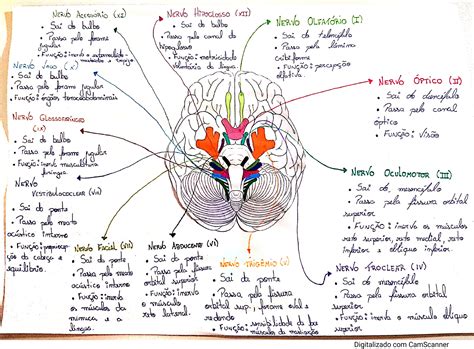 Nervo Acessório (XI)
• Sai do bulbo
• Passa pelo forame jugular
• Função: inerva o esternocleido-
Nervo Vago (X)
• Sai do bulbo
• Passa pelo forame jugular
• Função: órgãos toracoabdominais
Nervo Glossofaríngeo
(IX)
• Sai do bulbo
• Passa pelo forame jugular
• Função: inerva musculatura
faríngea
Nervo
Vestibulococlear (VIII)
• Sai da ponte
• Passa pelo meato
acústico interno
• Função:
da cabeça e
equilíbrio.
Nervo Hipoglosso (XII)
• Sai do bulbo
• Passa pelo canal do
hipoglosso
• Função: motricidade
voluntária da língua.
Nervo Olfatório (I)
• Sai do telencéfalo
• Passa pela lâmina
cribiforme
• Função: percepção
olfativa.
Nervo Óptico (II)
• Sai do diencéfalo
• Passa pelo canal
óptico
• Função: Visão
Nervo Oculomotor (III)
• Sai do mesencéfalo
• Passa pela fissura orbital
superior.
• Função: inerva os músculos
reto superior, reto medial, reto
inferior e oblíquo inferior.
Nervo Facial (VII)
• Sai da ponte
• Passa pelo meato
acústico interno
• Função: inerva
os músculos da
mímica e a
língua.
Nervo Abducente (VI)
• Sai da ponte
• Passa pela fissura
orbital superior
• Função: inerva
o músculo
reto lateral
Nervo Trigêmio (V)
• Sai da ponte
• Passa pela fissura
orbital sup., forame oval e
redondo.
• Função: sensibilidade da face
músculos da mastigação
Nervo Troclear (IV)
• Sai do mesencéfalo
• Passa pela fissura orbital
superior
• Função: inerva o músculo
oblíquo superior.
Digitalizado com CamScanner